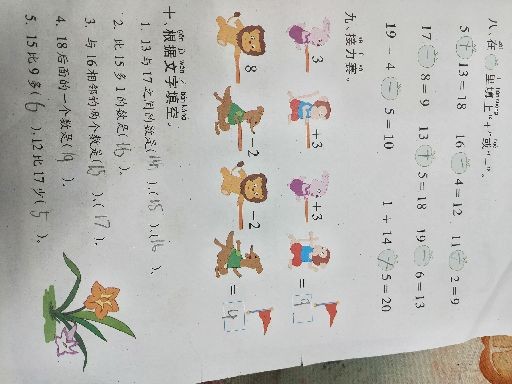 八、在○里填上“+”或“-”。
5 + 13 = 18 16 - 4 = 12 11 - 2 = 9
17 - 8 = 9 13 + 5 = 18 19 - 6 = 13
19 - 4 - 5 = 10 1 + 14 + 5 = 20
九、接力赛。
3 +3 +3 =
8 -2 -2 = 4
十、根据文字填空。
1. 13与17之间的数是(14)、(15)、(16)。
2. 比15多1的数是(16)。
3. 与16相邻的两个数是(15)、(17)。
4. 18后面的一个数是(19)。
5. 15比9多(6)、12比17少(5)。